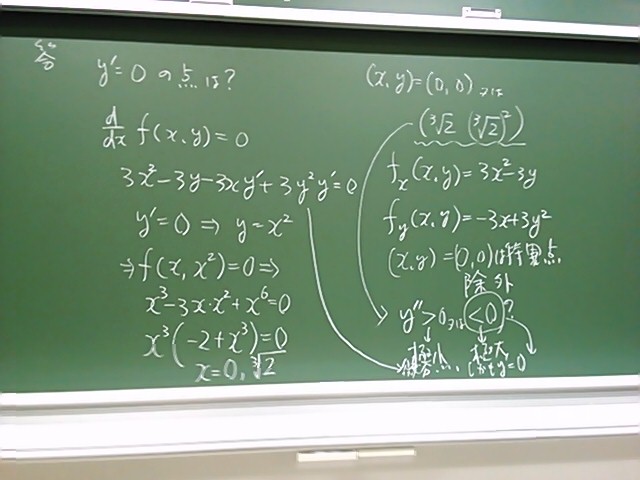 答
y'=0 の点は?
d/dx f(x,y)=0
3x²-3y-3xy'+3y²y'=0
y'=0 ⇒ y=x²
⇒f(x,x²)=0⇒
x³-3x·x²+x⁶=0
x³(-2+x³)=0
x=0, ³√2
(x,y)=(0,0) または
(³√2 (³√2)²)
fx(x,y)=3x²-3y
fy(x,y)=-3x+3y²
(x,y)=(0,0)は特異点
除外
y''>0または<0?
極小, 極大
y=0